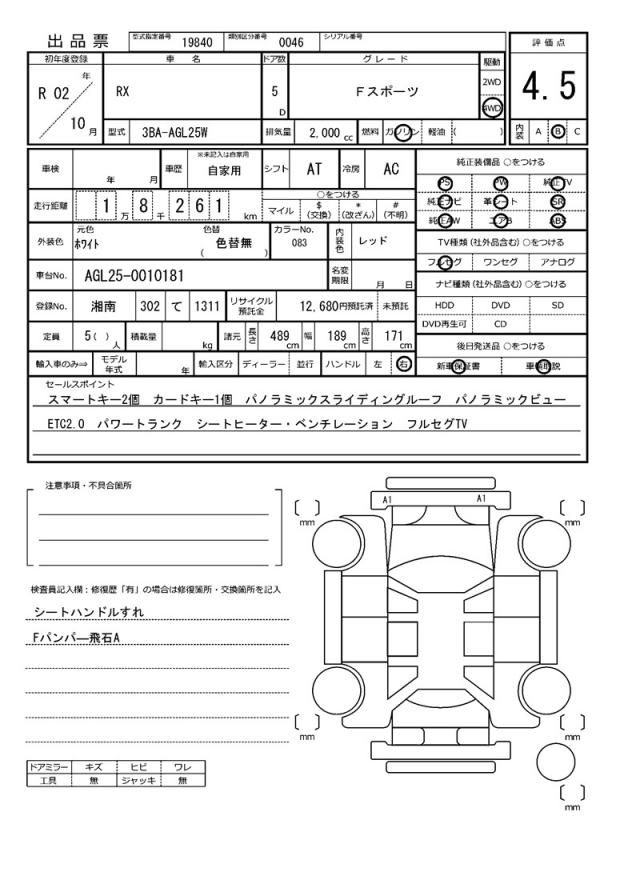 出品票 型式指定番号 19840 類別区分番号 0046 シリアル番号
初年度登録 車名 ドア数 グレード 駆動 評価点
R 02 年 10 月 RX 5 D Fスポーツ 2WD 4WD 4.5
型式 3BA-AGL25W 排気量 2,000 cc 燃料 ガソリン 軽油 ( ) 内装 A B C
車検 年 月 車歴 ※未記入は自家用 自家用 シフト AT 冷房 AC
走行距離 1 万 8 千 2 6 1 km ○をつける マイル $ (交換) * (改ざん) # (不明)
外装色 元色 ホワイト 色替 色替無 ( ) カラーNo. 083 内装色 レッド
車台No. AGL25-0010181 名変期限 月 日
登録No. 湘南 302 て 1311 リサイクル預託金 12,680円預託済 未預託
定員 5( ) 人 積載量 kg 諸元 長さ 489 cm 幅 189 cm 高さ 171 cm
輸入車のみ⇒ モデル年式 年 輸入区分 ディーラー 並行 ハンドル 左 右
純正装備品 ○をつける
PS PW 純正TV
純正ナビ 革シート SR
純正AW エアB ABS
TV種類 (社外品含む) ○をつける
フルセグ ワンセグ アナログ
ナビ種類 (社外品含む) ○をつける
HDD DVD SD
DVD再生可 CD
後日発送品 ○をつける
新車保証書 車輌取説
セールスポイント
スマートキー2個 カードキー1個 パノラミックスライディングルーフ パノラミックビュー
ETC2.0 パワートランク シートヒーター・ベンチレーション フルセグTV
注意事項・不具合箇所
検査員記入欄:修復歴「有」の場合は修復箇所・交換箇所を記入
シートハンドルすれ
Fバンパー飛石A
ドアミラー キズ ヒビ ワレ
工具 無 ジャッキ 無
A1 A1
mm mm
mm mm
mm